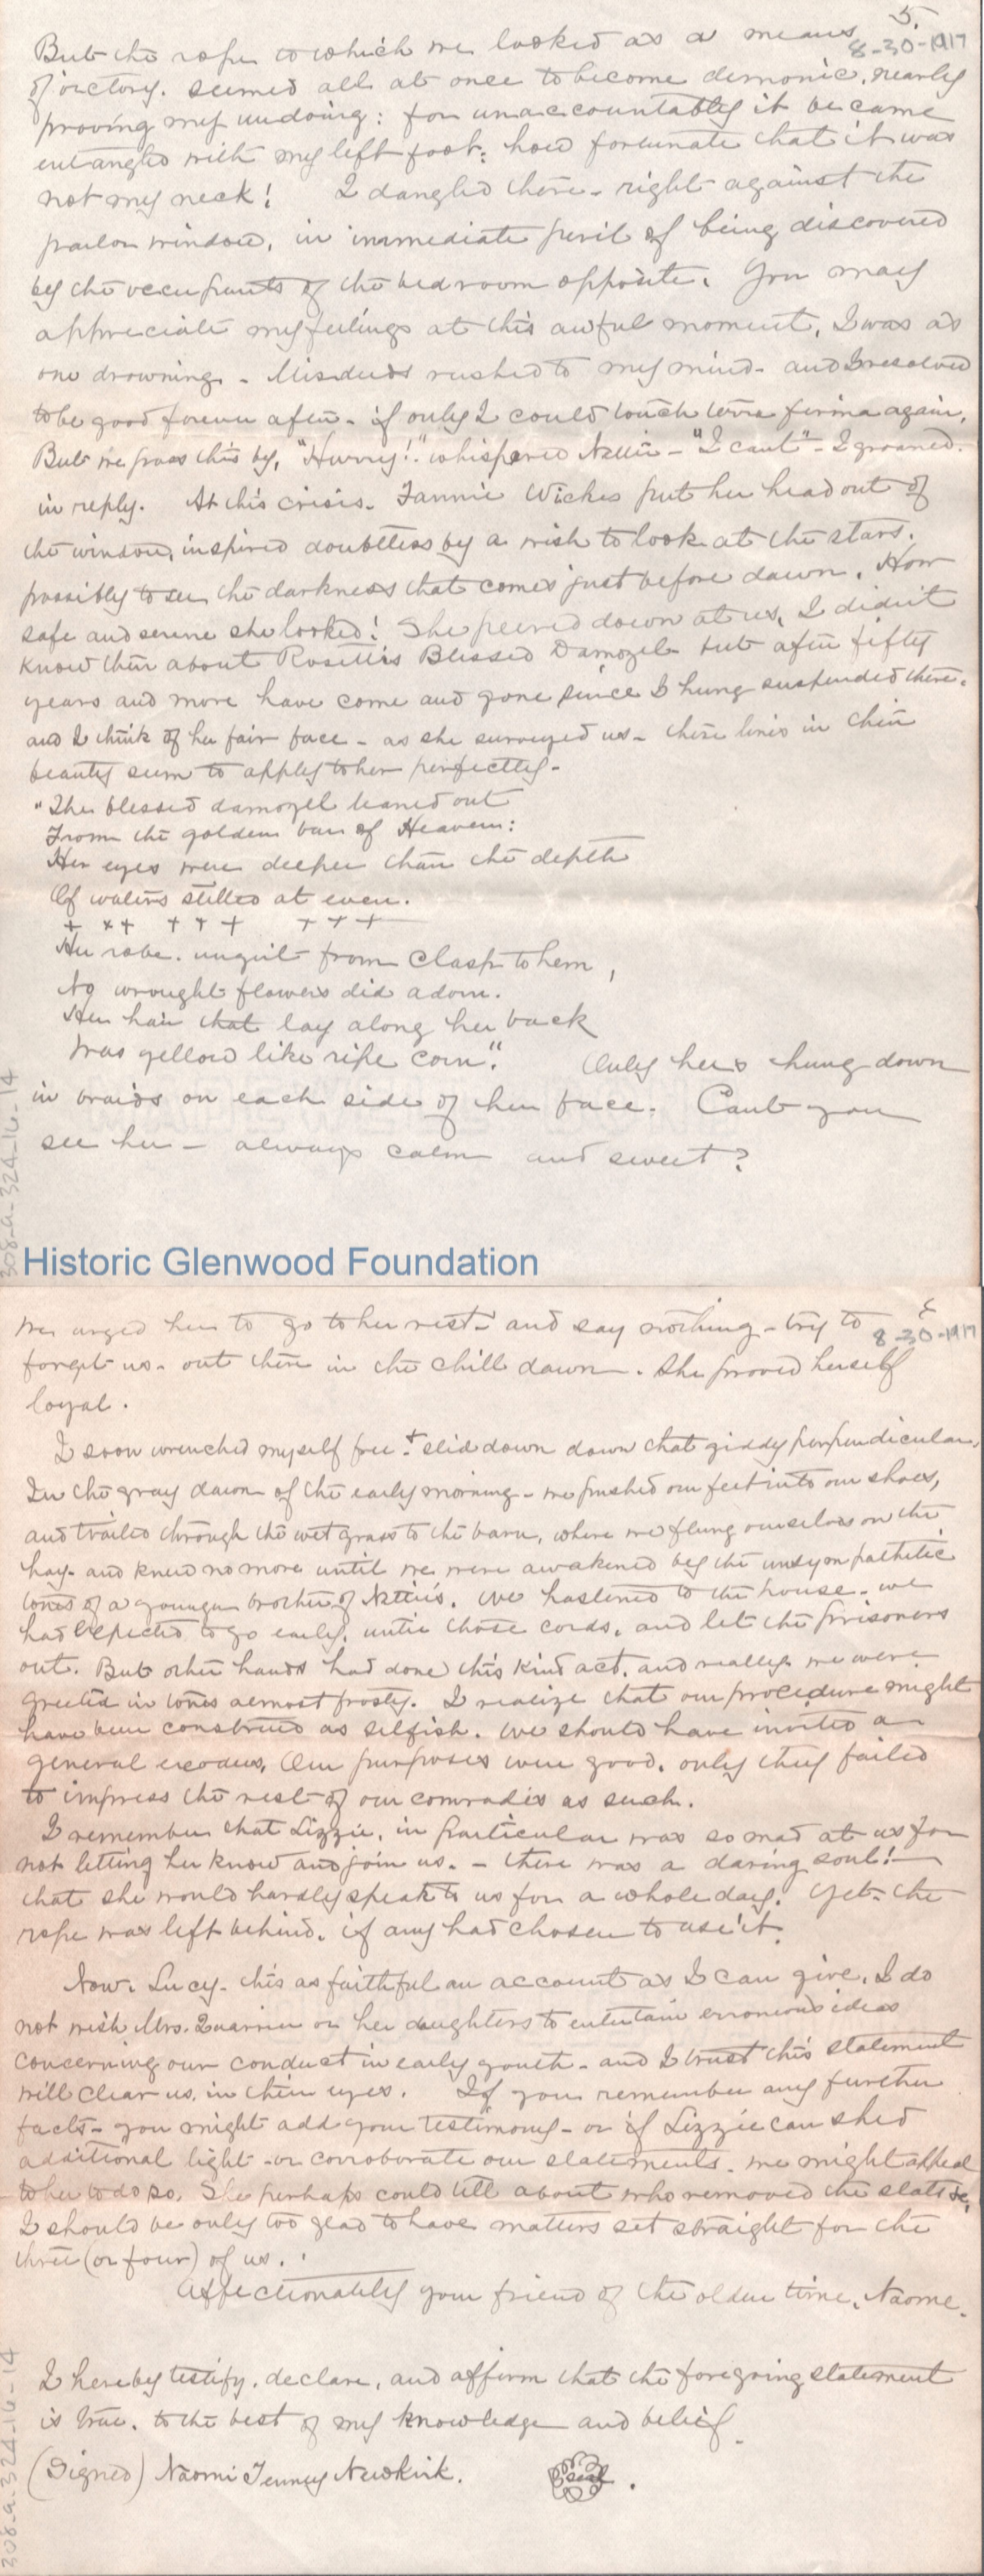 5.
8-30-1917
But the rope to which we looked as a means
of victory. seemed all at once to become demonic, nearly
proving my undoing: for unaccountably it became
entangled with my left foot: how fortunate that it was
not my neck! I dangled there - right against the
parlor window, in immediate peril of being discovered
by the occupants of the bedroom opposite. You may
appreciate my feelings at this awful moment, I was as
one drowning. - Misdeeds rushed to my mind - and I resolved
to be good forever after - if only I could touch terra firma again.
But we pass this by, "Hurry!" whispered Nettie - "I can't" - I groaned.
in reply. At this crisis - Fannie Wickes put her head out of
the window, inspired doubtless by a wish to look at the stars.
possibly to see the darkness that comes just before dawn. How
safe and serene she looked! She peered down at us, I didn't
know then about Rosetti's Blessed Damozel - but after fifty
years and more have come and gone since I hung suspended there.
and I think of her fair face - as she surveyed us - these lines in their
beauty seem to apply to her perfectly -
"The blessed damozel leaned out
From the golden bar of Heaven:
Her eyes were deeper than the depth
Of waters stilled at even.
+ ++ + + + + + +
Her robe. ungirt from clasp to hem,
No wrought flowers did adorn.
Her hair that lay along her back
Was yellow like ripe corn." Only hers hung down
in braids on each side of her face. Can't you
see her - always calm and sweet?
308-a-324-16-14
Historic Glenwood Foundation
6
8-30-1917
We urged her to go to her rest - and say nothing - try to
forget us - out there in the chill dawn. She proved herself
loyal.
I soon wrenched myself free + slid down down that giddy perpendicular.
In the gray dawn of the early morning - we pushed our feet into our shoes,
and trailed through the wet grass to the barn, where we flung ourselves on the
hay - and knew no more until we were awakened by the unsympathetic
tones of a younger brother of Nettie's. We hastened to the house - we
had expected to go early, untie those cords, and let the prisoners
out. But other hands had done this kind act, and really we were
greeted in tones almost frosty. I realize that our procedure might
have been construed as selfish. We should have invited a
general exodus, Our purposes were good, only they failed
to impress the rest of our comrades as such.
I remember that Lizzie, in particular was so mad at us for
not letting her know and join us. - there was a daring soul! -
that she would hardly speak to us for a whole day. Yet - the
rope was left behind. if any had chosen to use it.
Now. Lucy - this as faithful an account as I can give. I do
not wish Mrs. Quarrier or her daughters to entertain erroneous ideas
concerning our conduct in early youth - and I trust this statement
will clear us, in their eyes. If you remember any further
facts - you might add your testimony - or if Lizzie can shed
additional light - or corroborate our statements - we might appeal
to her to do so. She perhaps could tell about who removed the slats
I should be only too glad to have matters set straight for the
three (or four) of us.
Affectionately your friend of the olden time, Naome.
I hereby testify, declare, and affirm that the foregoing statement
is true, to the best of my knowledge and belief.
(Signed) Naomi Tenney Newkirk. Seal.
308-a-324-16-14